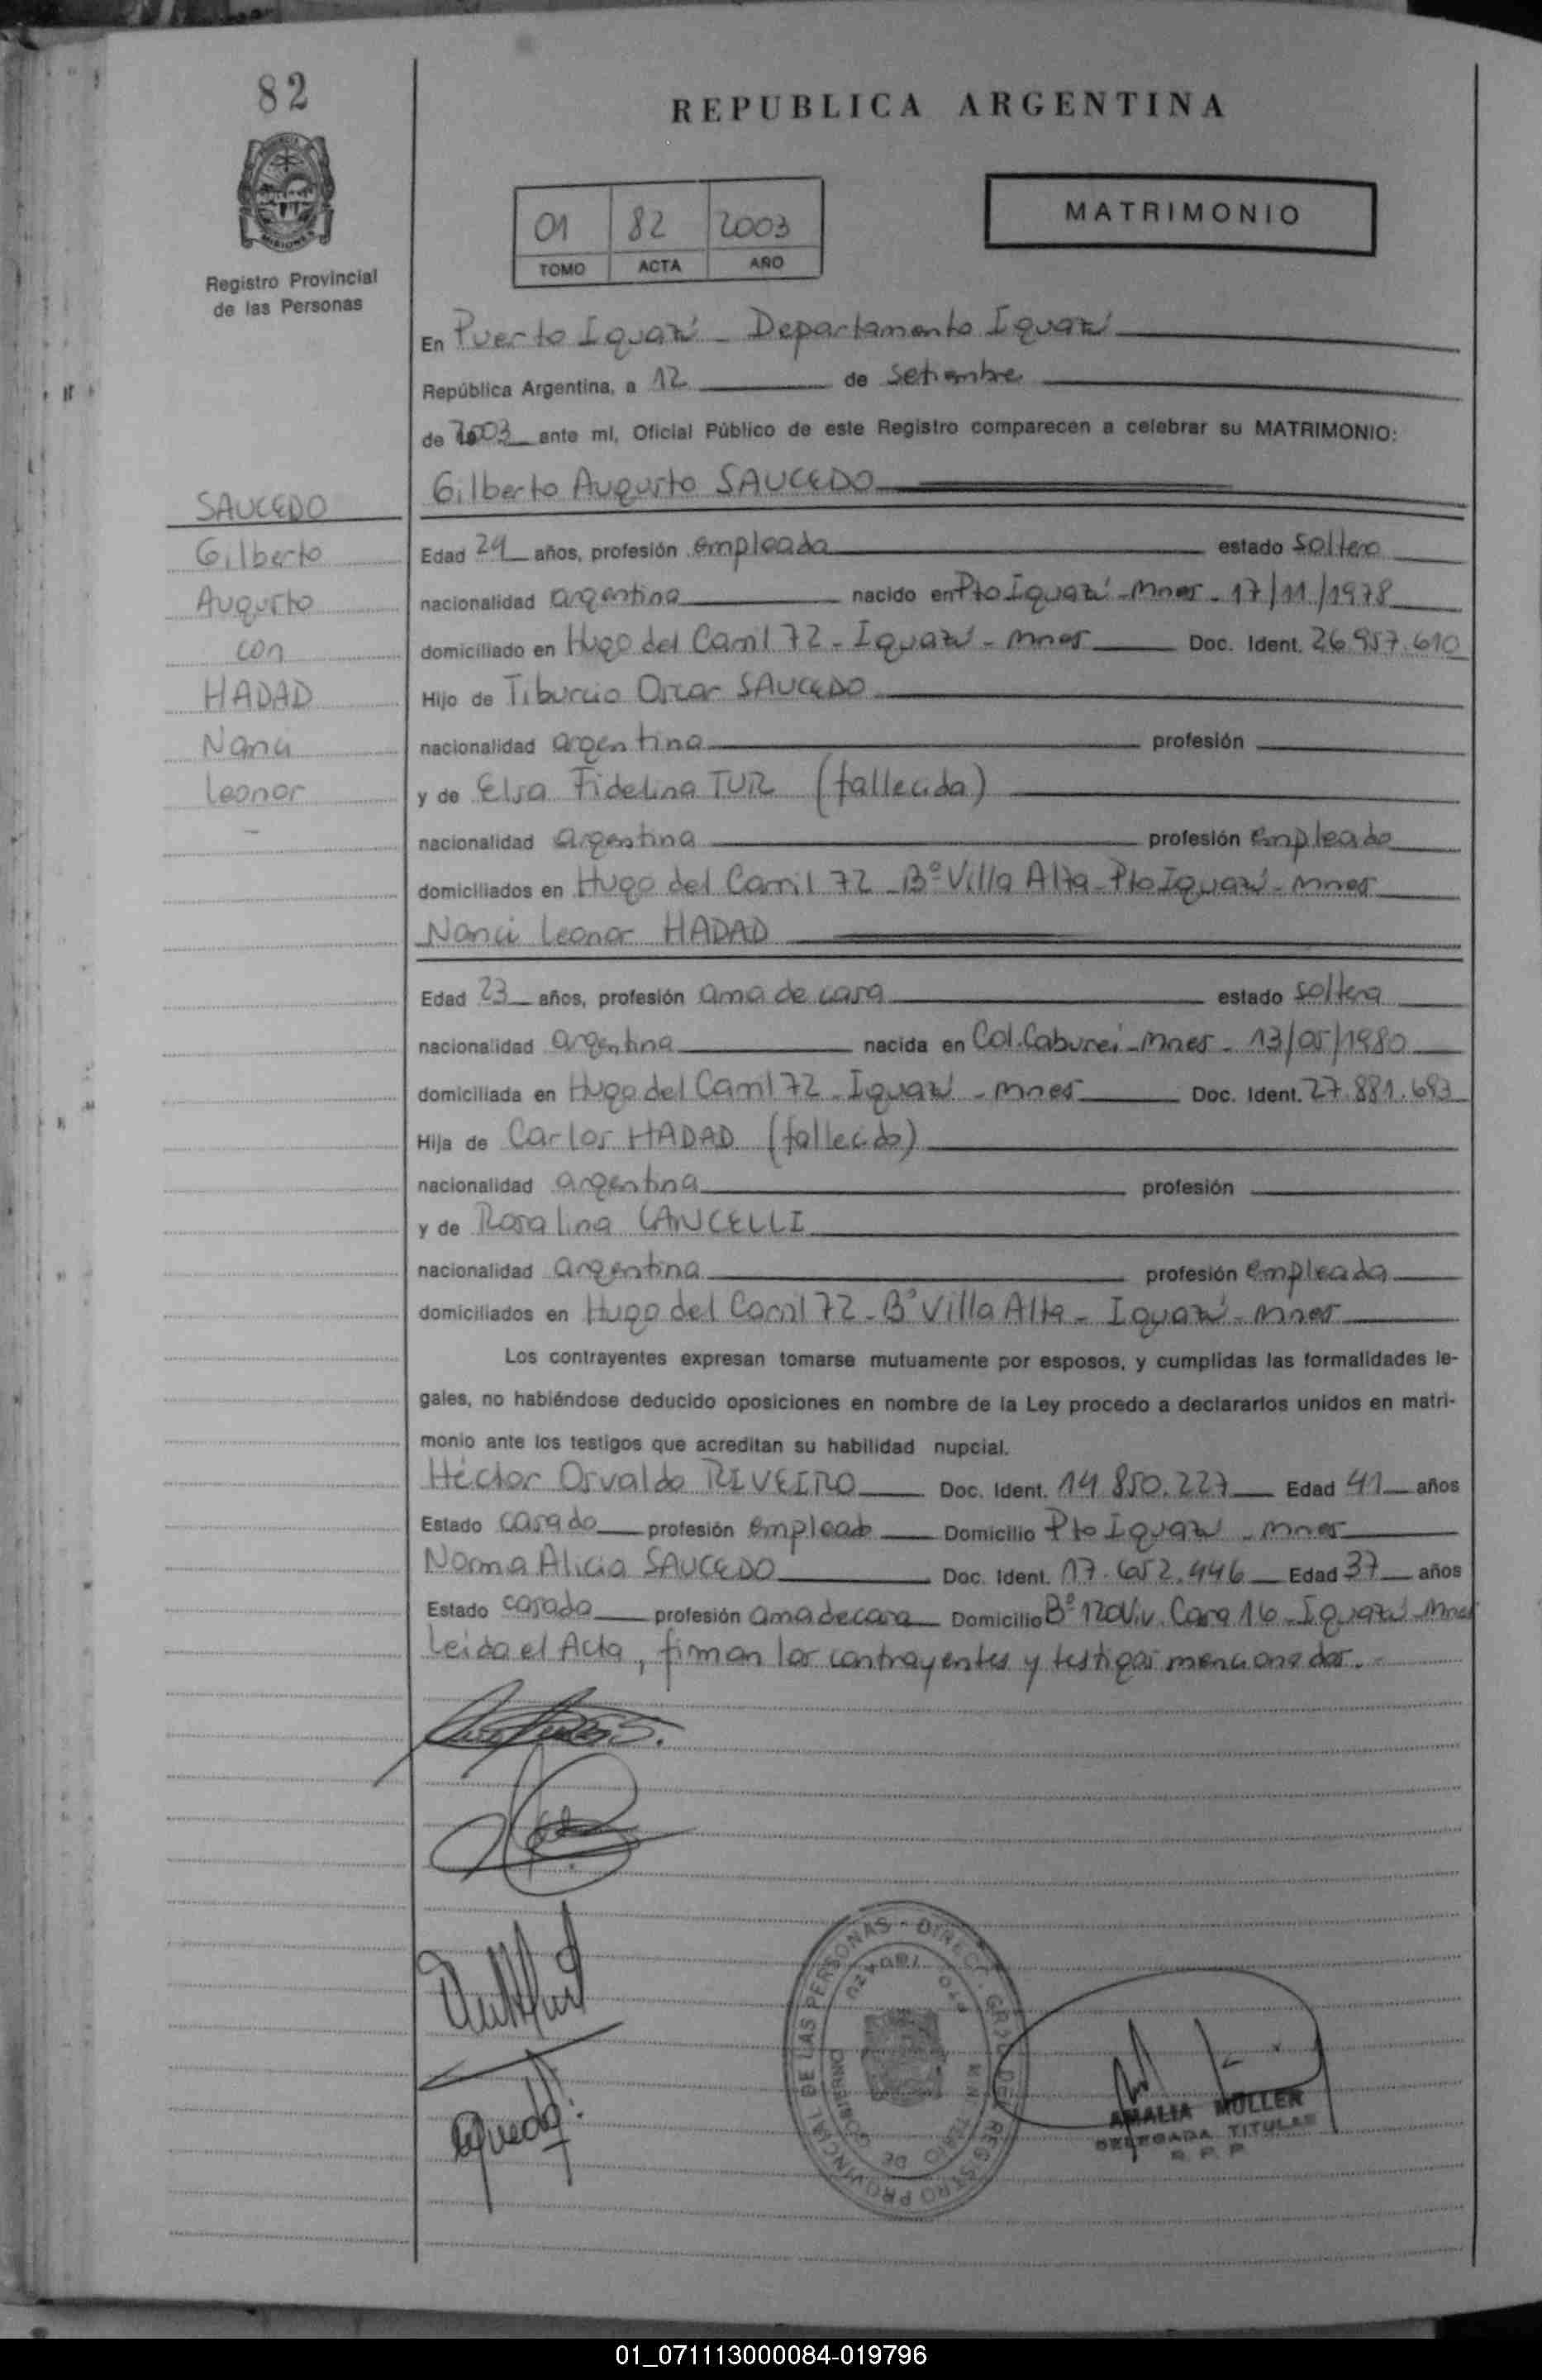 82
REPUBLICA ARGENTINA
01 82 2003
TOMO ACTA AÑO
MATRIMONIO
Registro Provincial
de las Personas
En Puerto Iguazú - Departamento Iguazú
República Argentina, a 12 de Setiembre
de 2003 ante mí, Oficial Público de este Registro comparecen a celebrar su MATRIMONIO:
Gilberto Augusto SAUCEDO
SAUCEDO
Gilberto
Augusto
con
HADAD
Nanci
Leonor
Edad 24 años, profesión empleado estado soltero
nacionalidad argentina nacido en Pto Iguazú - Mnes - 17/11/1978
domiciliado en Hugo del Carril 72 - Iguazú - Mnes Doc. Ident. 26.957.610
Hijo de Tiburcio Oscar SAUCEDO
nacionalidad argentina profesión
y de Elsa Fidelina TUR (fallecida)
nacionalidad argentina profesión empleado
domiciliados en Hugo del Carril 72 - Bº Villa Alta - Pto Iguazú - Mnes
Nanci Leonor HADAD
Edad 23 años, profesión ama de casa estado soltera
nacionalidad argentina nacida en Col. Caburei - Mnes - 13/05/1980
domiciliada en Hugo del Carril 72 - Iguazú - Mnes Doc. Ident. 27.881.693
Hija de Carlos HADAD (fallecido)
nacionalidad argentina profesión
y de Rosalina CANCELLI
nacionalidad argentina profesión empleada
domiciliados en Hugo del Carril 72 - Bº Villa Alta - Iguazú - Mnes
Los contrayentes expresan tomarse mutuamente por esposos, y cumplidas las formalidades le-
gales, no habiéndose deducido oposiciones en nombre de la Ley procedo a declararlos unidos en matri-
monio ante los testigos que acreditan su habilidad nupcial.
Héctor Osvaldo RIVEIRO Doc. Ident. 14.850.227 Edad 41 años
Estado casado profesión empleado Domicilio Pto Iguazú - Mnes
Norma Alicia SAUCEDO Doc. Ident. 17.652.446 Edad 37 años
Estado casada profesión ama de casa Domicilio Bº 120 Viv. Casa 16 - Iguazú - Mnes
Leída el Acta, firman los contrayentes y testigos mencionados.-
REGISTRO PROVINCIAL DE LAS PERSONAS - DIRECC. GRAL. DEL
PTO. IGUAZU
MINISTERIO DE GOBIERNO
AMALIA MULLER
DELEGADA TITULAR
R. P. P.
01_071113000084-019796